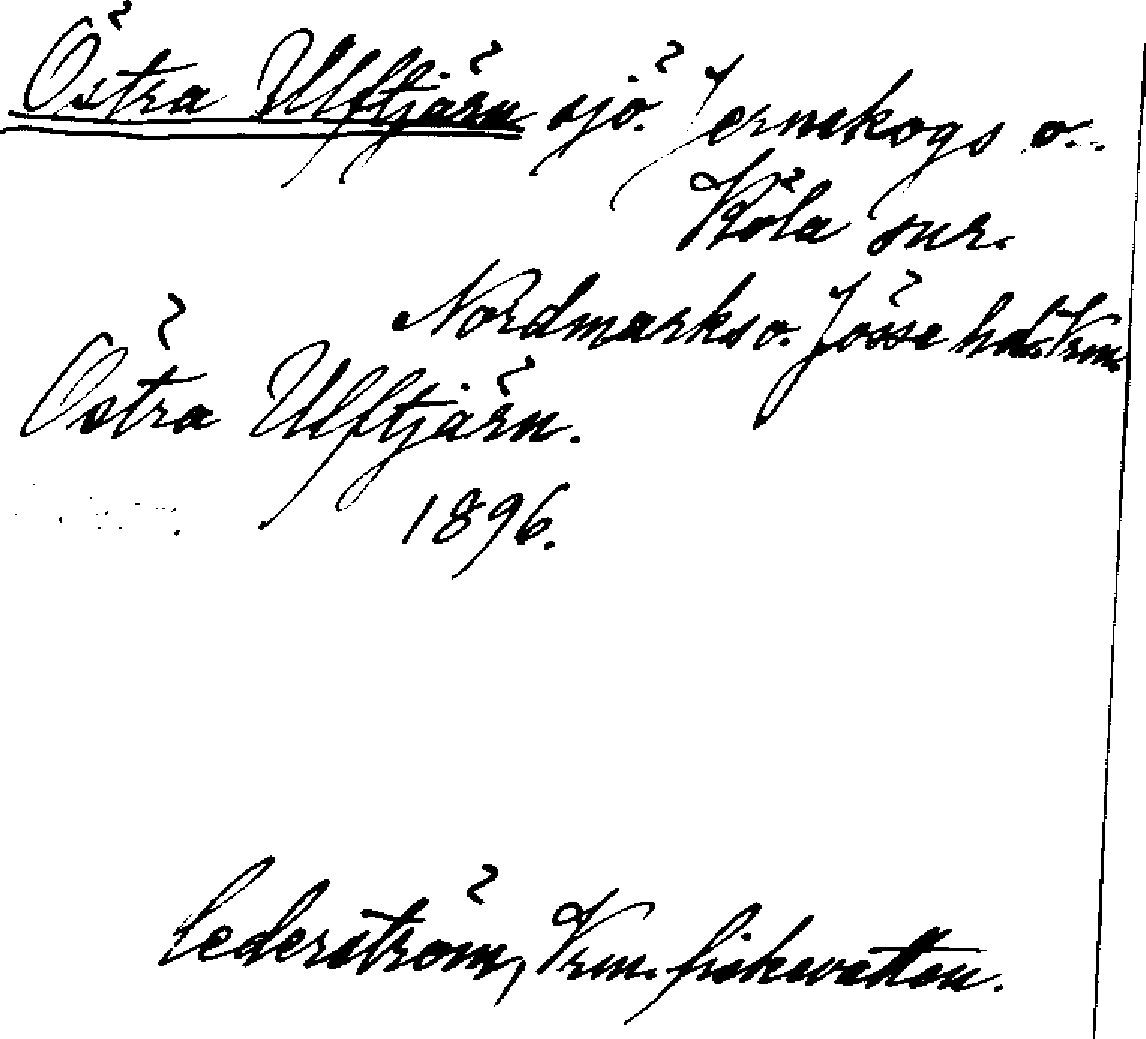 Östra Ulftjärn sjö. Jernskogs o.
Köla snr.
Nordmarks o. Jösse hd. Vrm.
Östra Ulftjärn.
1896.
Cederström, Vrm. fiskevatten.